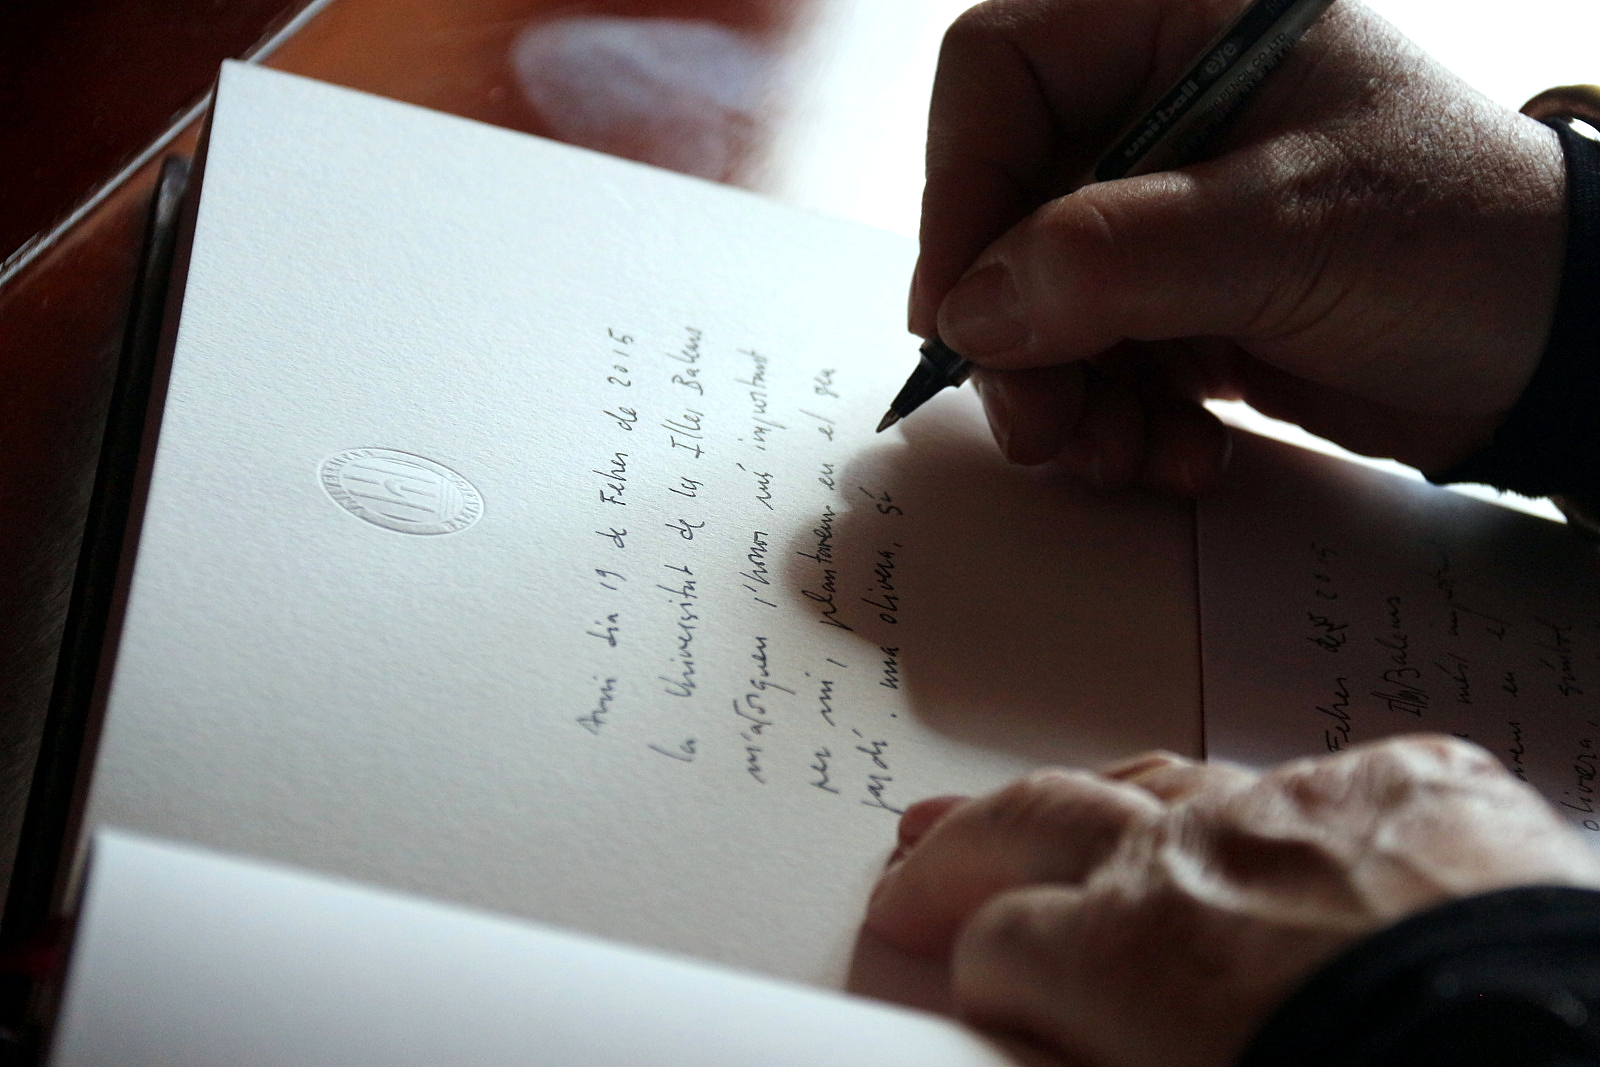 Avui dia 19 de Febrer de 2015
la Universitat de les Illes Balears
m'atorguen l'honor més important
per mi, plantarem en el seu
jardí. una olivera, si
uni-ball eye
Febrer de 2015
Illes Balears
més
en el
olivera,